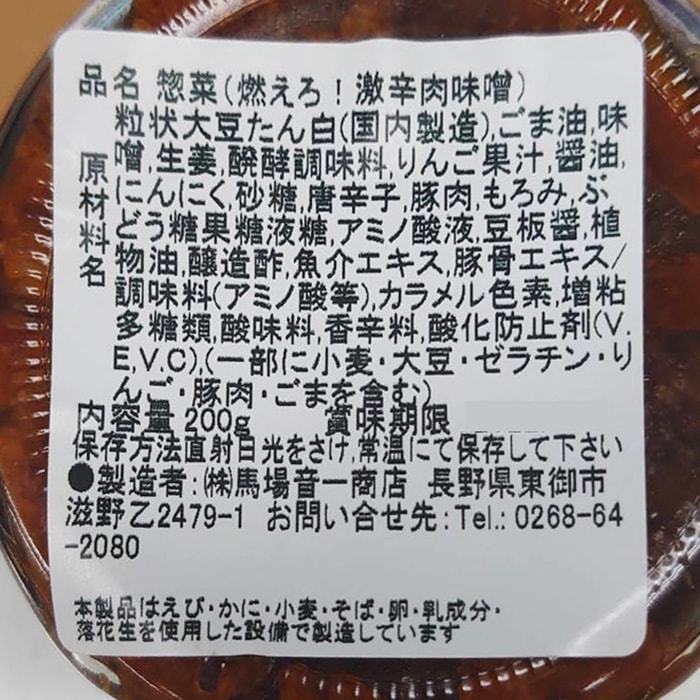 品名 惣菜(燃えろ！激辛肉味噌)
原材料名
粒状大豆たん白(国内製造),ごま油,味
噌,生姜,醗酵調味料,りんご果汁,醤油,
にんにく,砂糖,唐辛子,豚肉,もろみ,ぶ
どう糖果糖液糖,アミノ酸液,豆板醤,植
物油,醸造酢,魚介エキス,豚骨エキス/
調味料(アミノ酸等),カラメル色素,増粘
多糖類,酸味料,香辛料,酸化防止剤(V.
E,V.C),(一部に小麦・大豆・ゼラチン・り
んご・豚肉・ごまを含む)
内容量 200g 賞味期限
保存方法直射日光をさけ,常温にて保存して下さい
●製造者:㈱馬場音一商店 長野県東御市
滋野乙2479-1 お問い合せ先:Tel.:0268-64
-2080
本製品はえび・かに・小麦・そば・卵・乳成分・
落花生を使用した設備で製造しています